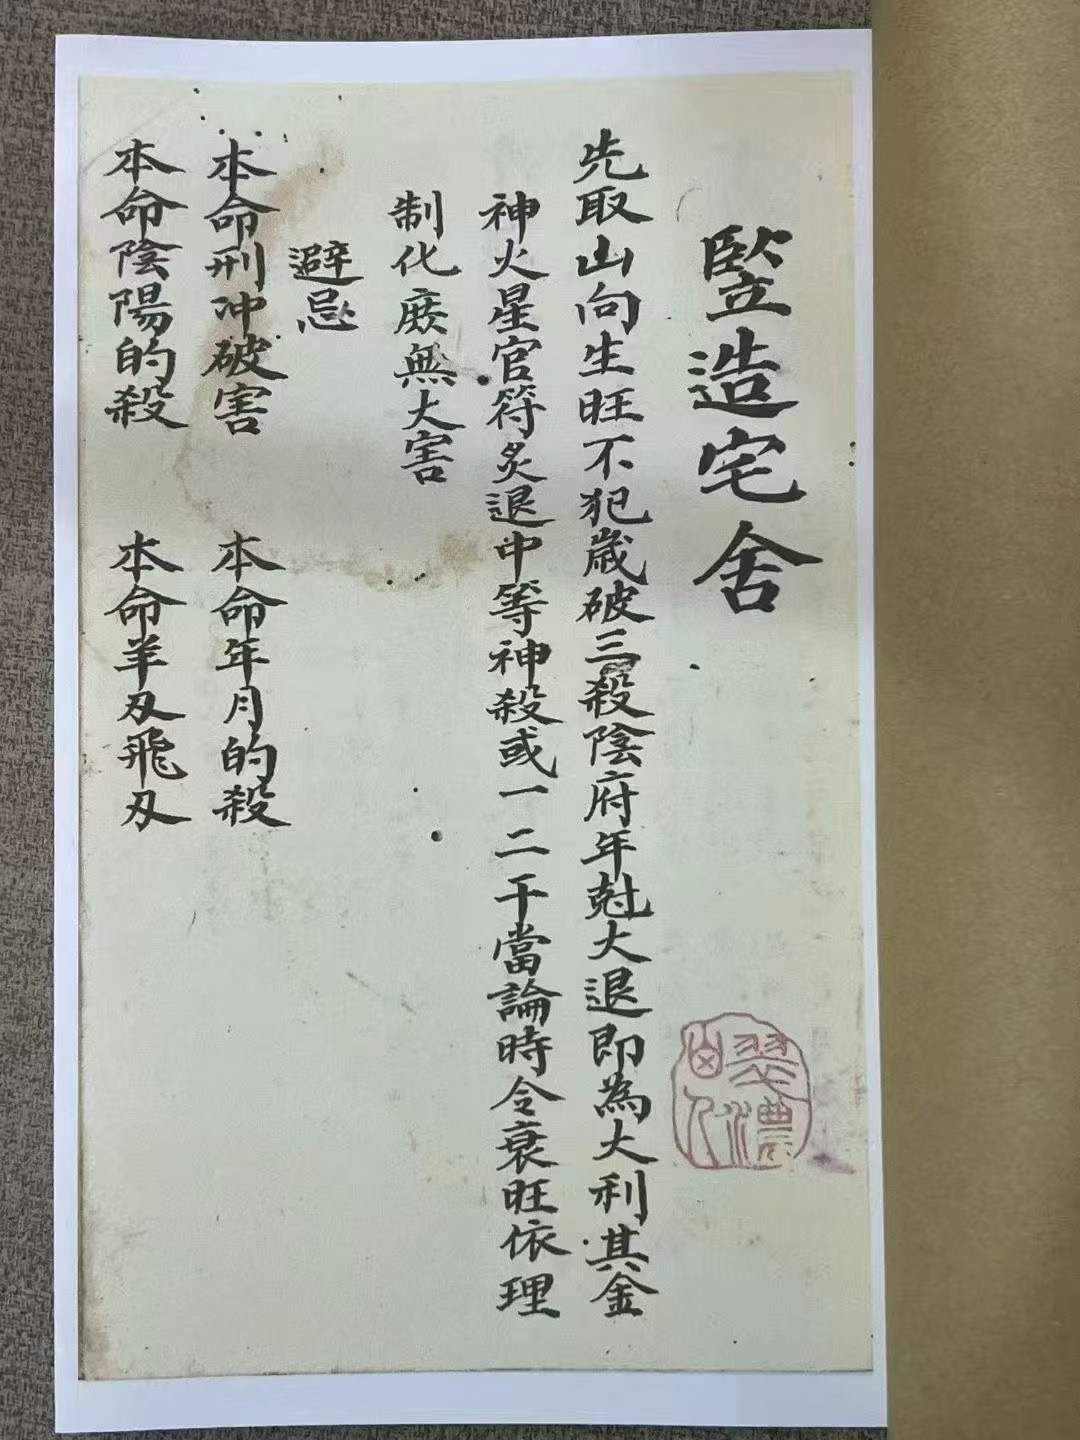 竪造宅舍
先取山向生旺不犯歲破三殺陰府年尅大退即為大利其金
神火星官符炙退中等神殺或一二干當論時令衰旺依理
制化庶無大害
避忌
本命刑冲破害 本命年月的殺
本命陰陽的殺 本命羊刃飛刃